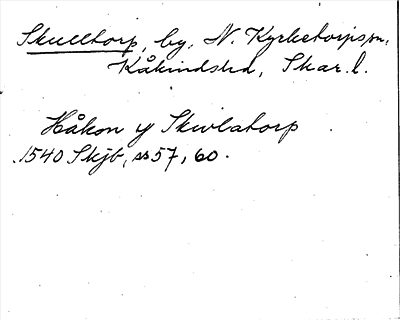 Skulltorp, by, N. Kyrketorps sn,
Kåkinds hd, Skar. l.
Håkon y Skwlatorp
1540 Skjb, ss 57, 60.